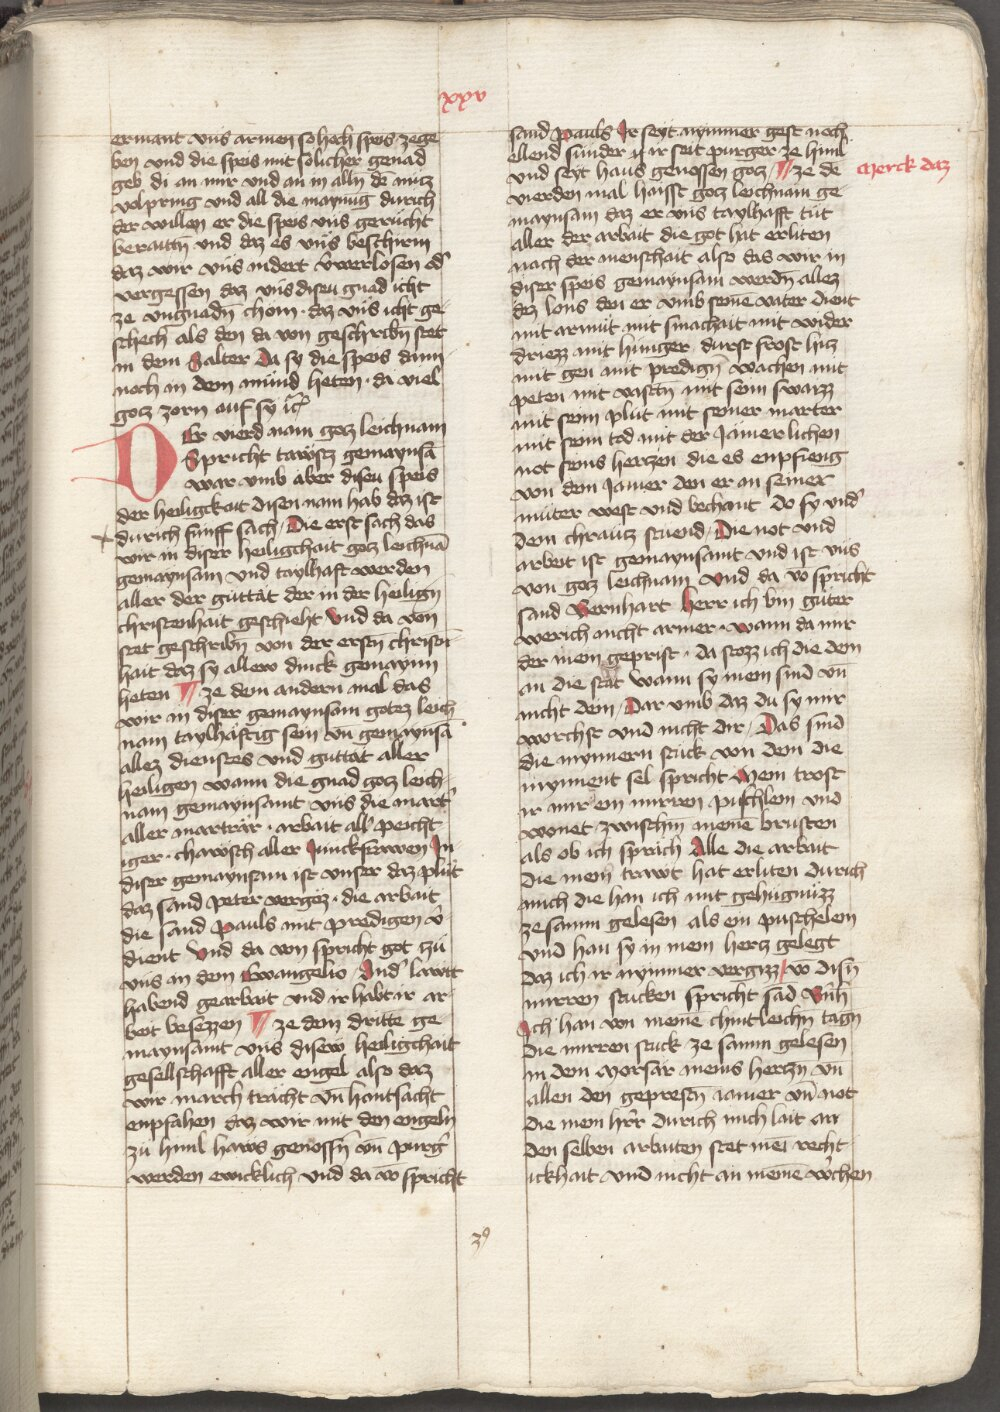 xxv
ermant vns armen so hoch speis zege
ben vnd die speis mit solicher genad
geb di an mir vnd an in alln de nutz
volpring vnd all die maynug durich
der willen er die speis vns gerucht
beraittn vnd daz es vns beschirm
daz wir vns indert v̈werlosen od'
vergessen daz vns disen gnad icht
ze vngnadn chom · daz vns icht ge-
schech als den da von geschribn stet
in dem Salter Da sy die speis dann
noch in dem mund heten · da viel
gotz zorn auf sy ꝛc
Der vierd nam gotz leichnam
Spricht tawsz gemaynsā
war vmb aber disen speis
der heiligckait disen nam hab daz ist
durich funff sach / Die erst sach das
wir in diser heiligchait gotz leichnā
gemaynsam vnd taylhaft werden
aller der guttat der in der heilign
christenhait geschieht Vnd da von
stet geschribn von der erstn christn̄
hait daz sy allew dinck gemaynn
heten ¶ ze dem andern mal das
wir in diser gemaynsam gotez leich
nam taylhäftig sein vn̄ gemaynsā
allez dienstes vnd guttat aller
heiligen wann die gnad gotz leich-
nam gemaynsamt vns die mart'
aller marträr · arbait all' peicht
iger · chawsch aller Junckfrawen In
diser gemaynsam ist vnser daz plut
daz sand peter vergoz · die arbait
die sand Pauls mit predigen v̈-
dient Vnd da von spricht got zu
vns an dem Ewangelio And' lawt
habend gearbait vnd ir habt ir ar-
beit besezzen ¶ ze dem dritte ge
maynsamt vns disew heiligchait
gesellschafft aller engel also daz
wir march tracht vn̄ hantsacht
enpfahen daz wir mit den engeln
zu himl haws genossn̄ vn̄ purg'
werden ewicklich vnd da vō spricht
sand Pauls Ir seyt nymmer gest noch
ellend sunder ir seit purger ze himl
vnd seyt haus genossen gotz / ¶ ze dē
Merck daz
vierden mal haisst gotz leichnam ge
maynsam daz er vns taylhafft tut
aller der arbait die got hat erliten
nach der menschait also das wir in
diser speis gemaynsam werdn̄ allez
dez lons den er vmb seine vater dient
mit armut mit smachait mit wider
driezz mit hunger durst frost hitz
mit gen mit predign̄ wachen mit
peten mit vastn̄ mit seim swaizz
mit seim plut mit seiner marter
mit seim tod mit der Jamerlichen
not seins hertzen die es enpfieng
von dem Jamer den er an seiner
muter west vnd bechant Do sy vnd'
dem chrautz stuend / Die not vnd
arbeit ist gemaynsamt vnd ist vns
von gotz leichnam Vnd da vō spricht
sand Bernhart Herr ich bin guter
werich nicht armer · wann da mir
der mein geprist · da stozz ich die dein
an die stat Wann sy mein sind vn̄
nicht dein / Dar vmb daz du sy mir
worchst vnd nicht dir / Das sind
die mynnern stuck von dem die
mynnent sel spricht Mein trost
ir mir ein mirren puschlein vnd
wonet zwischn̄ meinē brusten
als ob ich sprach Alle die arbait
die mein trawt hat erliten durich
mich die han ich mit gehugnuzz
ze samm gelesen als ein puschelein
vnd han sy in mein hertz gelegt
daz ich ir nymmer vergizz / vō disn̄
mirren stucken spricht sād Bn̄h
Ich han von meinē chintleichn̄ tagn̄
die mirren stuck ze samm gelesen
in dem Morsar meins hertzn̄ vn̄
allen den geprestn̄ Jamer vn̄ not
die mein hr̄r durich mich lait an
den selben arbaiten stet mei recht
ickhait vnd nicht an meinē w̄chen
39